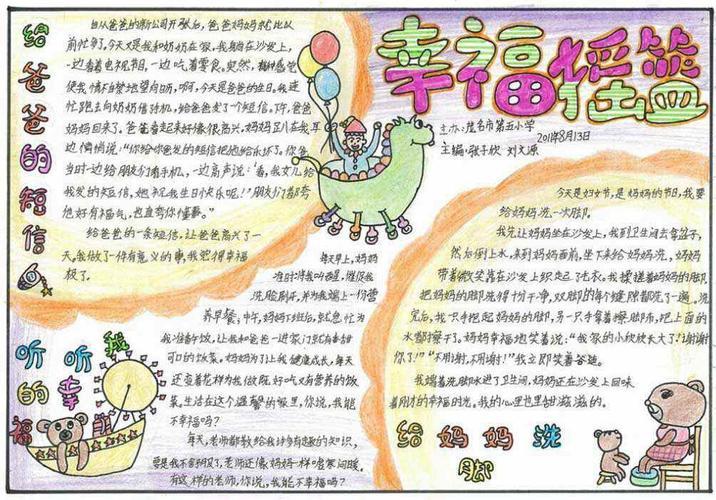 幸福摇篮
主办:茂名市第五小学
2011年8月13日
主编:张子欣 刘文源
给爸爸的短信
自从爸爸的新公司开张后,爸爸妈妈就比以
前忙多了,今天又是我和奶奶在家,我躺在沙发上,
一边看着电视节目,一边吃着零食。突然,
使我情不自禁地望向日历,啊,今天是爸爸的生日。我连
忙跑去向奶奶借手机,给爸爸发了个短信。下午,爸爸
妈妈回来了。爸爸看起来好像很高兴,妈妈在我耳
边悄悄说:“你给你爸发的短信把他给乐坏了。你爸
当时一边给朋友们看手机,一边高声说:‘看,我女儿给
我发的短信,她祝我生日快乐呢!’朋友们都夸
他好有福气,也直夸你懂事。”
给爸爸的一条短信,让爸爸高兴了一
天。我做了一件有意义的事,我觉得幸福
极了。
今天是妇女节,是妈妈的节日,我要
给妈妈洗一次脚。
我先让妈妈坐在沙发上,我到卫生间去拿盆子,
然后倒上水,来到妈妈面前,坐下来给妈妈洗,妈妈
带着微笑靠在沙发上织起了毛衣。我揉搓着妈妈的脚,
把妈妈的脚洗得干干净净,双脚的每个缝隙都洗了一遍。洗
完后,我一只手抱起妈妈的脚,另一只手拿着擦脚布,把上面的
水都擦干了。妈妈幸福地笑着说:“我家的小欣欣长大了!谢谢
你了!”“不用谢,不用谢!”我立即笑着答道。
我端着洗脚水进了卫生间,妈妈还在沙发上回味
着刚才的幸福时光。我的心里也甜滋滋的。
给妈妈洗
脚
听听我
的幸
福
每天早上,妈妈
准时将我叫醒,催促我
洗脸刷牙,并为我端上一份营
养早餐;中午,妈妈下班后就急忙为
我准备午饭,让我和爸爸一进家门就有香甜
可口的饭菜。妈妈为了让我健康成长,每天
还变着花样为我做既好吃又有营养的饭
菜。生活在这个温馨的家里,你说,我能
不幸福吗?
每天,老师都教给我许多有趣的知识,
要是我不舒服了,老师还像妈妈一样嘘寒问暖。
有这样的老师,你说,我能不幸福吗?